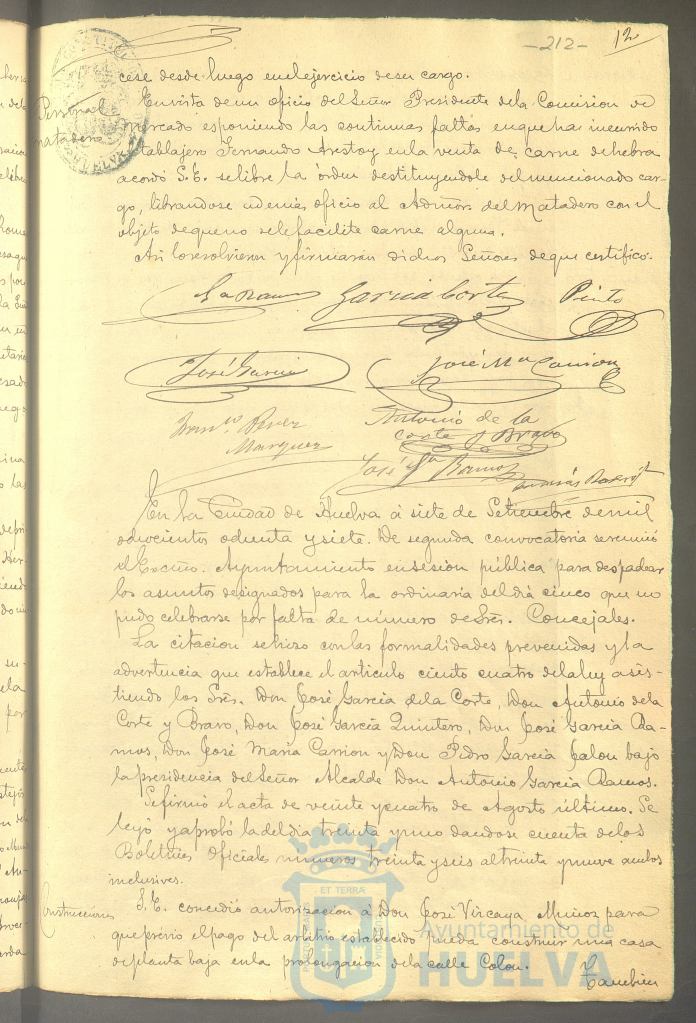 -212- 12
cese desde luego en el ejercicio de su cargo.
Personal
matadero
En vista de un oficio del Señor Presidente de la Comision de
Mercado esponiendo las continuas faltas en que ha incurrido
tablajero Fernando Arestoy en la venta de carne de hebra
acordó S.E. se libre la órden destituyendole del mencionado car-
go, librandose ademas oficio al Admor. del Matadero con el
objeto de que no se le facilite carne alguna.
Asi lo resolvieron y firmaran dichos Señores de que certifico.
Ga Ramos García Corte Pinto
José García José Ma Carrion
Franco Perez
Marquez
Antonio de la
Corte y Bravo
José Ga Ramos
En la Ciudad de Huelva á siete de Setiembre de mil
ochocientos ochenta y siete. De segunda convocatoria se reunió
el Excmo. Ayuntamiento en sesion pública para despachar
los asuntos designados para la ordinaria del dia cinco que no
pudo celebrarse por falta de número de Sres. Concejales.
La citacion se hizo con las formalidades prevenidas y la
advertencia que establece el articulo ciento cuatro de la ley asis-
tiendo los Sres. Don José García de la Corte, Don Antonio de la
Corte y Bravo, Don José García Quintero, Don José García Ra-
mos, Don José María Carrion y Don Pedro García Jalon bajo
la presidencia del Señor Alcalde Don Antonio García Ramos.
Se firmó el acta de veinte y cuatro de Agosto último. Se
leyó y aprobó la del dia treinta y uno dandose cuenta de los
Boletines Oficiales números treinta y seis al treinta y nueve ambos
inclusives.
Construcciones
S.E. concedió autorizacion á Don José Vizcaya Muñoz para
que prévio el pago del arbitrio establecido pueda construir una casa
de planta baja en la prolongacion de la calle Colon.
Tambien
ET TERRA
Ayuntamiento de
HUELVA